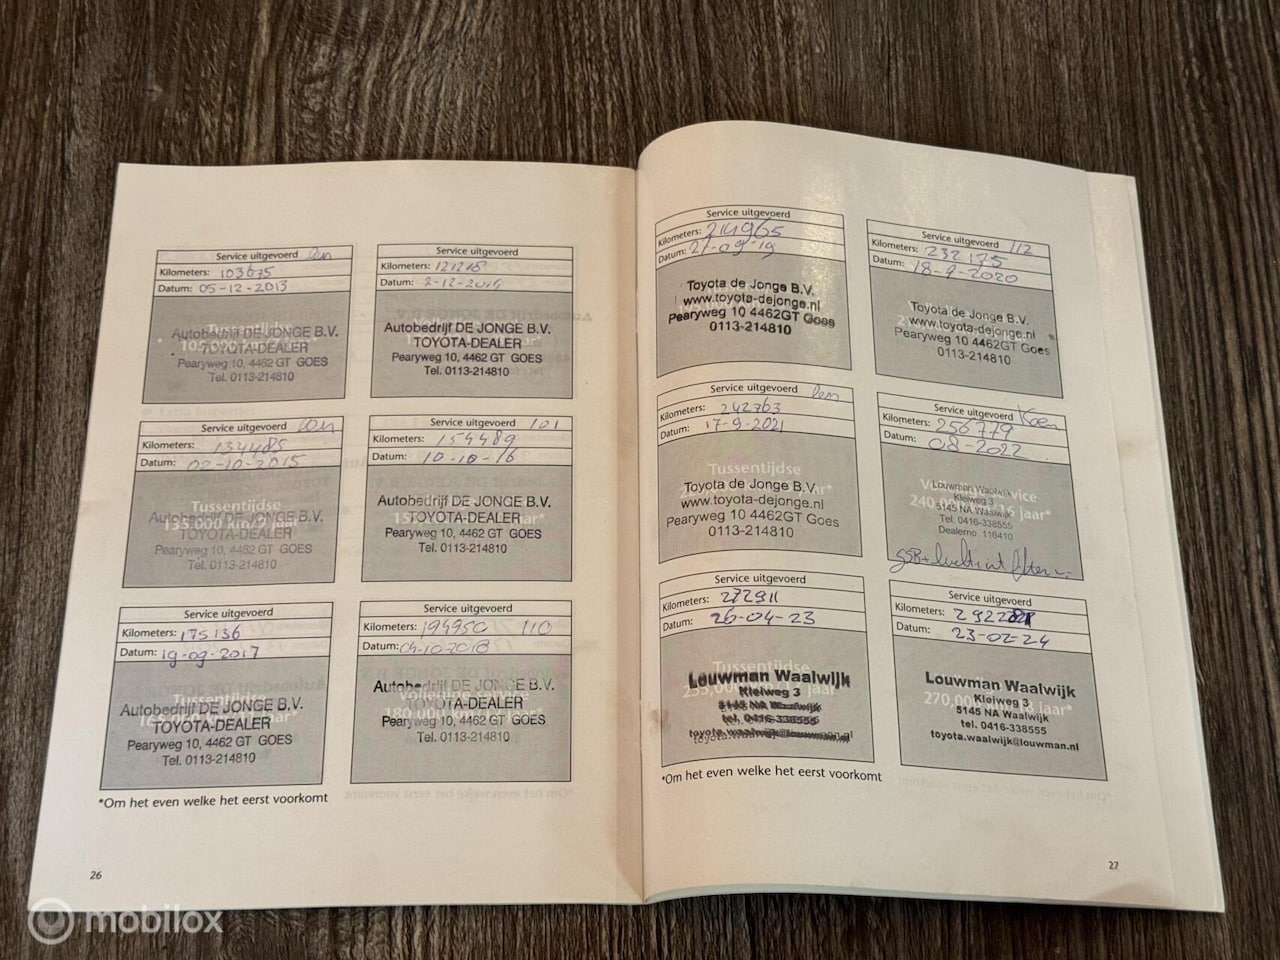 Service uitgevoerd
Kilometers: 103675
Datum: 05-12-2013
Autobedrijf DE JONGE B.V.
TOYOTA-DEALER
Pearyweg 10, 4462 GT GOES
Tel. 0113-214810
Service uitgevoerd
Kilometers: 121218
Datum: 2-12-2014
Autobedrijf DE JONGE B.V.
TOYOTA-DEALER
Pearyweg 10, 4462 GT GOES
Tel. 0113-214810
Service uitgevoerd
Kilometers: 134485
Datum: 02-10-2015
Tussentijdse
135.000 km/9 jaar*
Autobedrijf DE JONGE B.V.
TOYOTA-DEALER
Pearyweg 10, 4462 GT GOES
Tel. 0113-214810
Service uitgevoerd 101
Kilometers: 154489
Datum: 10-10-16
Autobedrijf DE JONGE B.V.
TOYOTA-DEALER
Pearyweg 10, 4462 GT GOES
Tel. 0113-214810
Service uitgevoerd
Kilometers: 175136
Datum: 19-09-2017
Tussentijdse
Autobedrijf DE JONGE B.V.
TOYOTA-DEALER
Pearyweg 10, 4462 GT GOES
Tel. 0113-214810
Service uitgevoerd
Kilometers: 194950 110
Datum: 04-10-2018
Volledige service
Autobedrijf DE JONGE B.V.
TOYOTA-DEALER
Pearyweg 10, 4462 GT GOES
Tel. 0113-214810
*Om het even welke het eerst voorkomt
26
Service uitgevoerd
Kilometers: 214965
Datum: 27-09-19
Toyota de Jonge B.V.
www.toyota-dejonge.nl
Pearyweg 10 4462GT Goes
0113-214810
Service uitgevoerd 112
Kilometers: 232175
Datum: 18-9-2020
Toyota de Jonge B.V.
www.toyota-dejonge.nl
Pearyweg 10 4462GT Goes
0113-214810
Service uitgevoerd
Kilometers: 242763
Datum: 17-9-2021
Tussentijdse
Toyota de Jonge B.V.
www.toyota-dejonge.nl
Pearyweg 10 4462GT Goes
0113-214810
Service uitgevoerd Koen
Kilometers: 256779
Datum: 08-2022
Volledige service
Louwman Waalwijk
Kleiweg 3
5145 NA Waalwijk
Tel. 0416-338555
Dealerno. 116410
Service uitgevoerd
Kilometers: 272911
Datum: 26-04-23
Tussentijdse
Louwman Waalwijk
Kleiweg 3
5145 NA Waalwijk
tel. 0416-338555
toyota.waalwijk@louwman.nl
Service uitgevoerd
Kilometers:
Datum: 23-02-24
Louwman Waalwijk
Kleiweg 3
5145 NA Waalwijk
tel. 0416-338555
toyota.waalwijk@louwman.nl
*Om het even welke het eerst voorkomt
27
mobilox